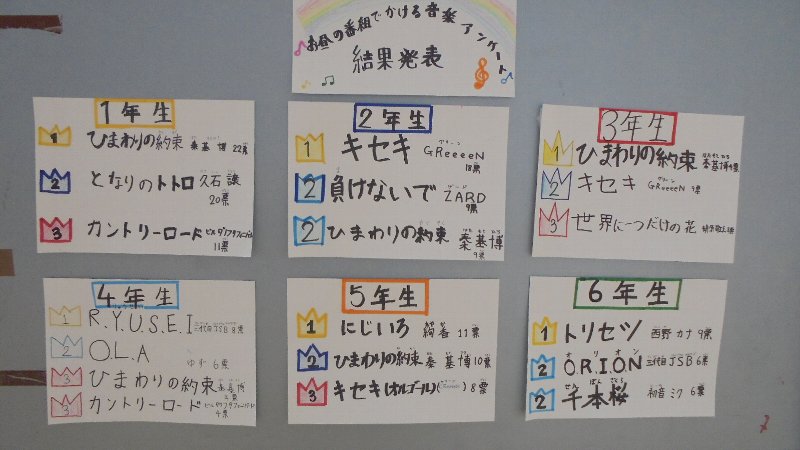 お昼の番組でかける音楽アンケート
結果発表
1年生
1 ひまわりの約束 秦基博 22票
2 となりのトトロ 久石譲
20票
3 カントリーロード
11票
2年生
1 キセキ GReeeeN
18票
2 負けないで ZARD
9票
2 ひまわりの約束 秦基博
9票
3年生
1 ひまわりの約束 秦基博
2 キセキ GReeeeN 9票
3 世界に一つだけの花
4年生
1 R.Y.U.S.E.I 三代目JSB 8票
2 O.L.A ゆず 6票
3 ひまわりの約束 秦基博
3 カントリーロード
4票
5年生
1 にじいろ 絢香 11票
2 ひまわりの約束 秦基博 10票
3 キセキ(オルゴール) 8票
6年生
1 トリセツ 西野カナ 9票
2 O.R.I.O.N 三代目JSB 6票
2 千本桜 初音ミク 6票